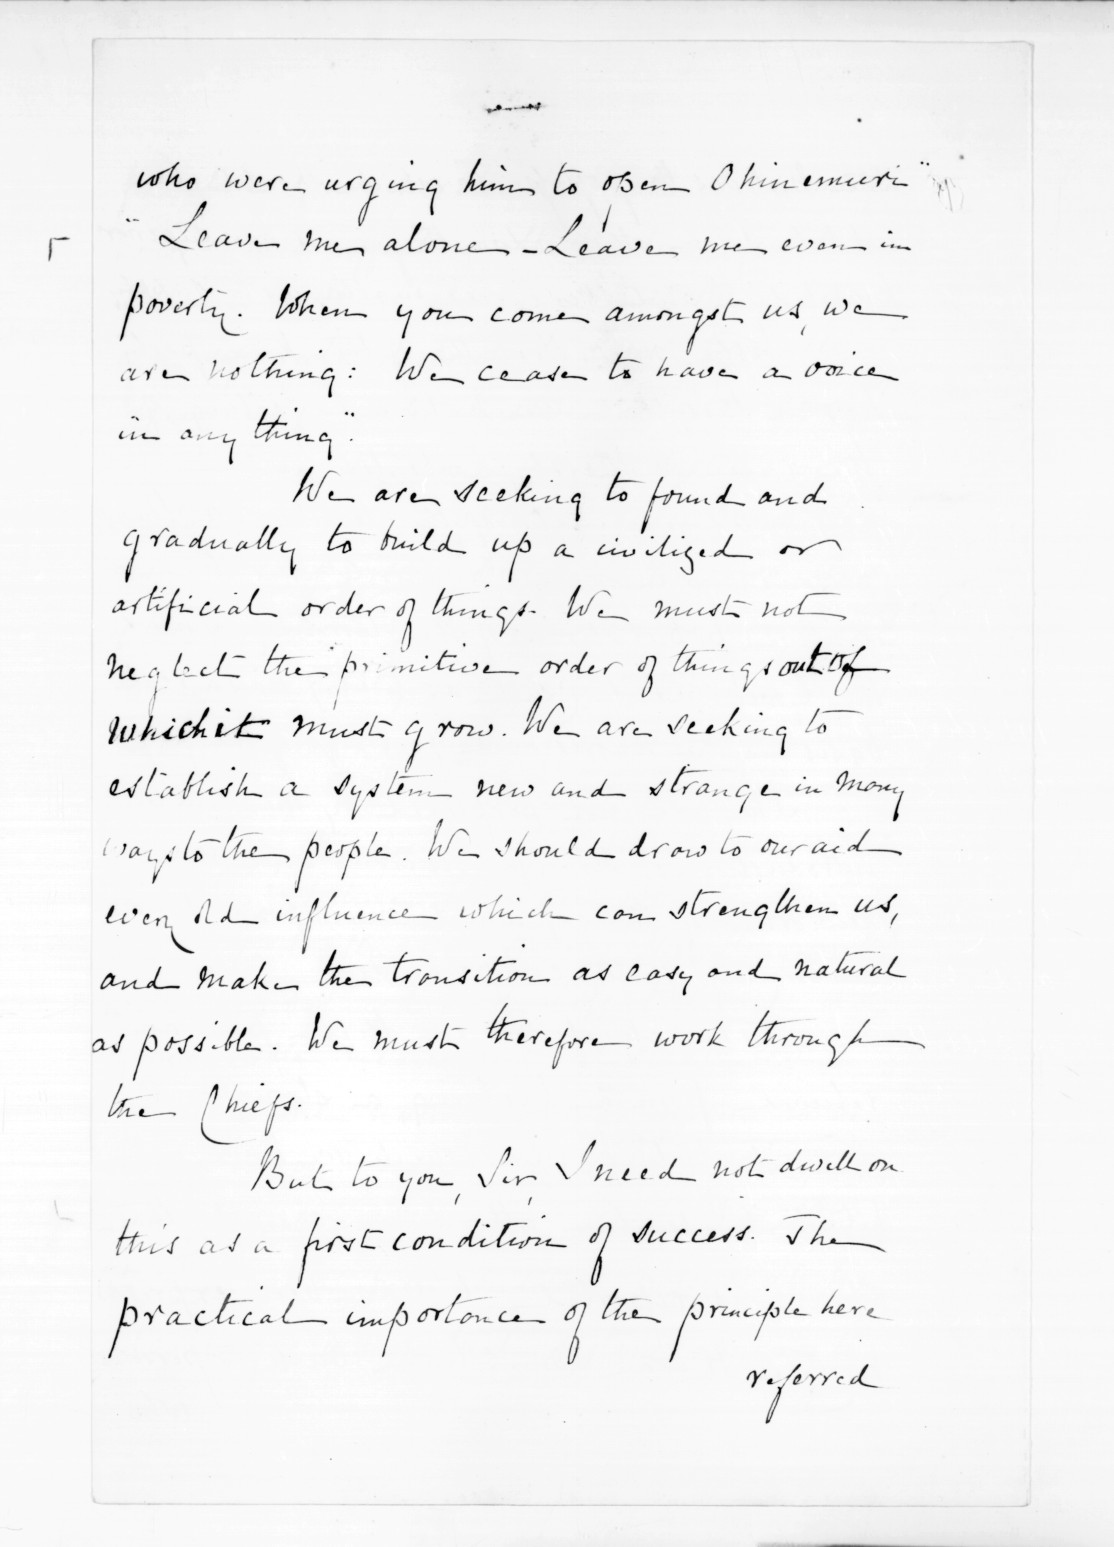 who were urging him to open Ohinemuri"
" Leave me alone - Leave me even in
poverty. When you come amongst us, we
are nothing: We cease to have a voice
in any thing".
We are seeking to found and
gradually to build up a civilized or
artificial order of things. We must not
neglect the primitive order of things out of
which it must grow. We are seeking to
establish a system new and strange in many
ways to the people. We should draw to our aid
every old influence which can strengthen us,
and make the transition as easy and natural
as possible. We must therefore work through
the Chiefs.
But to you, Sir, I need not dwell on
this as a first condition of success. The
practical importance of the principle here
referred